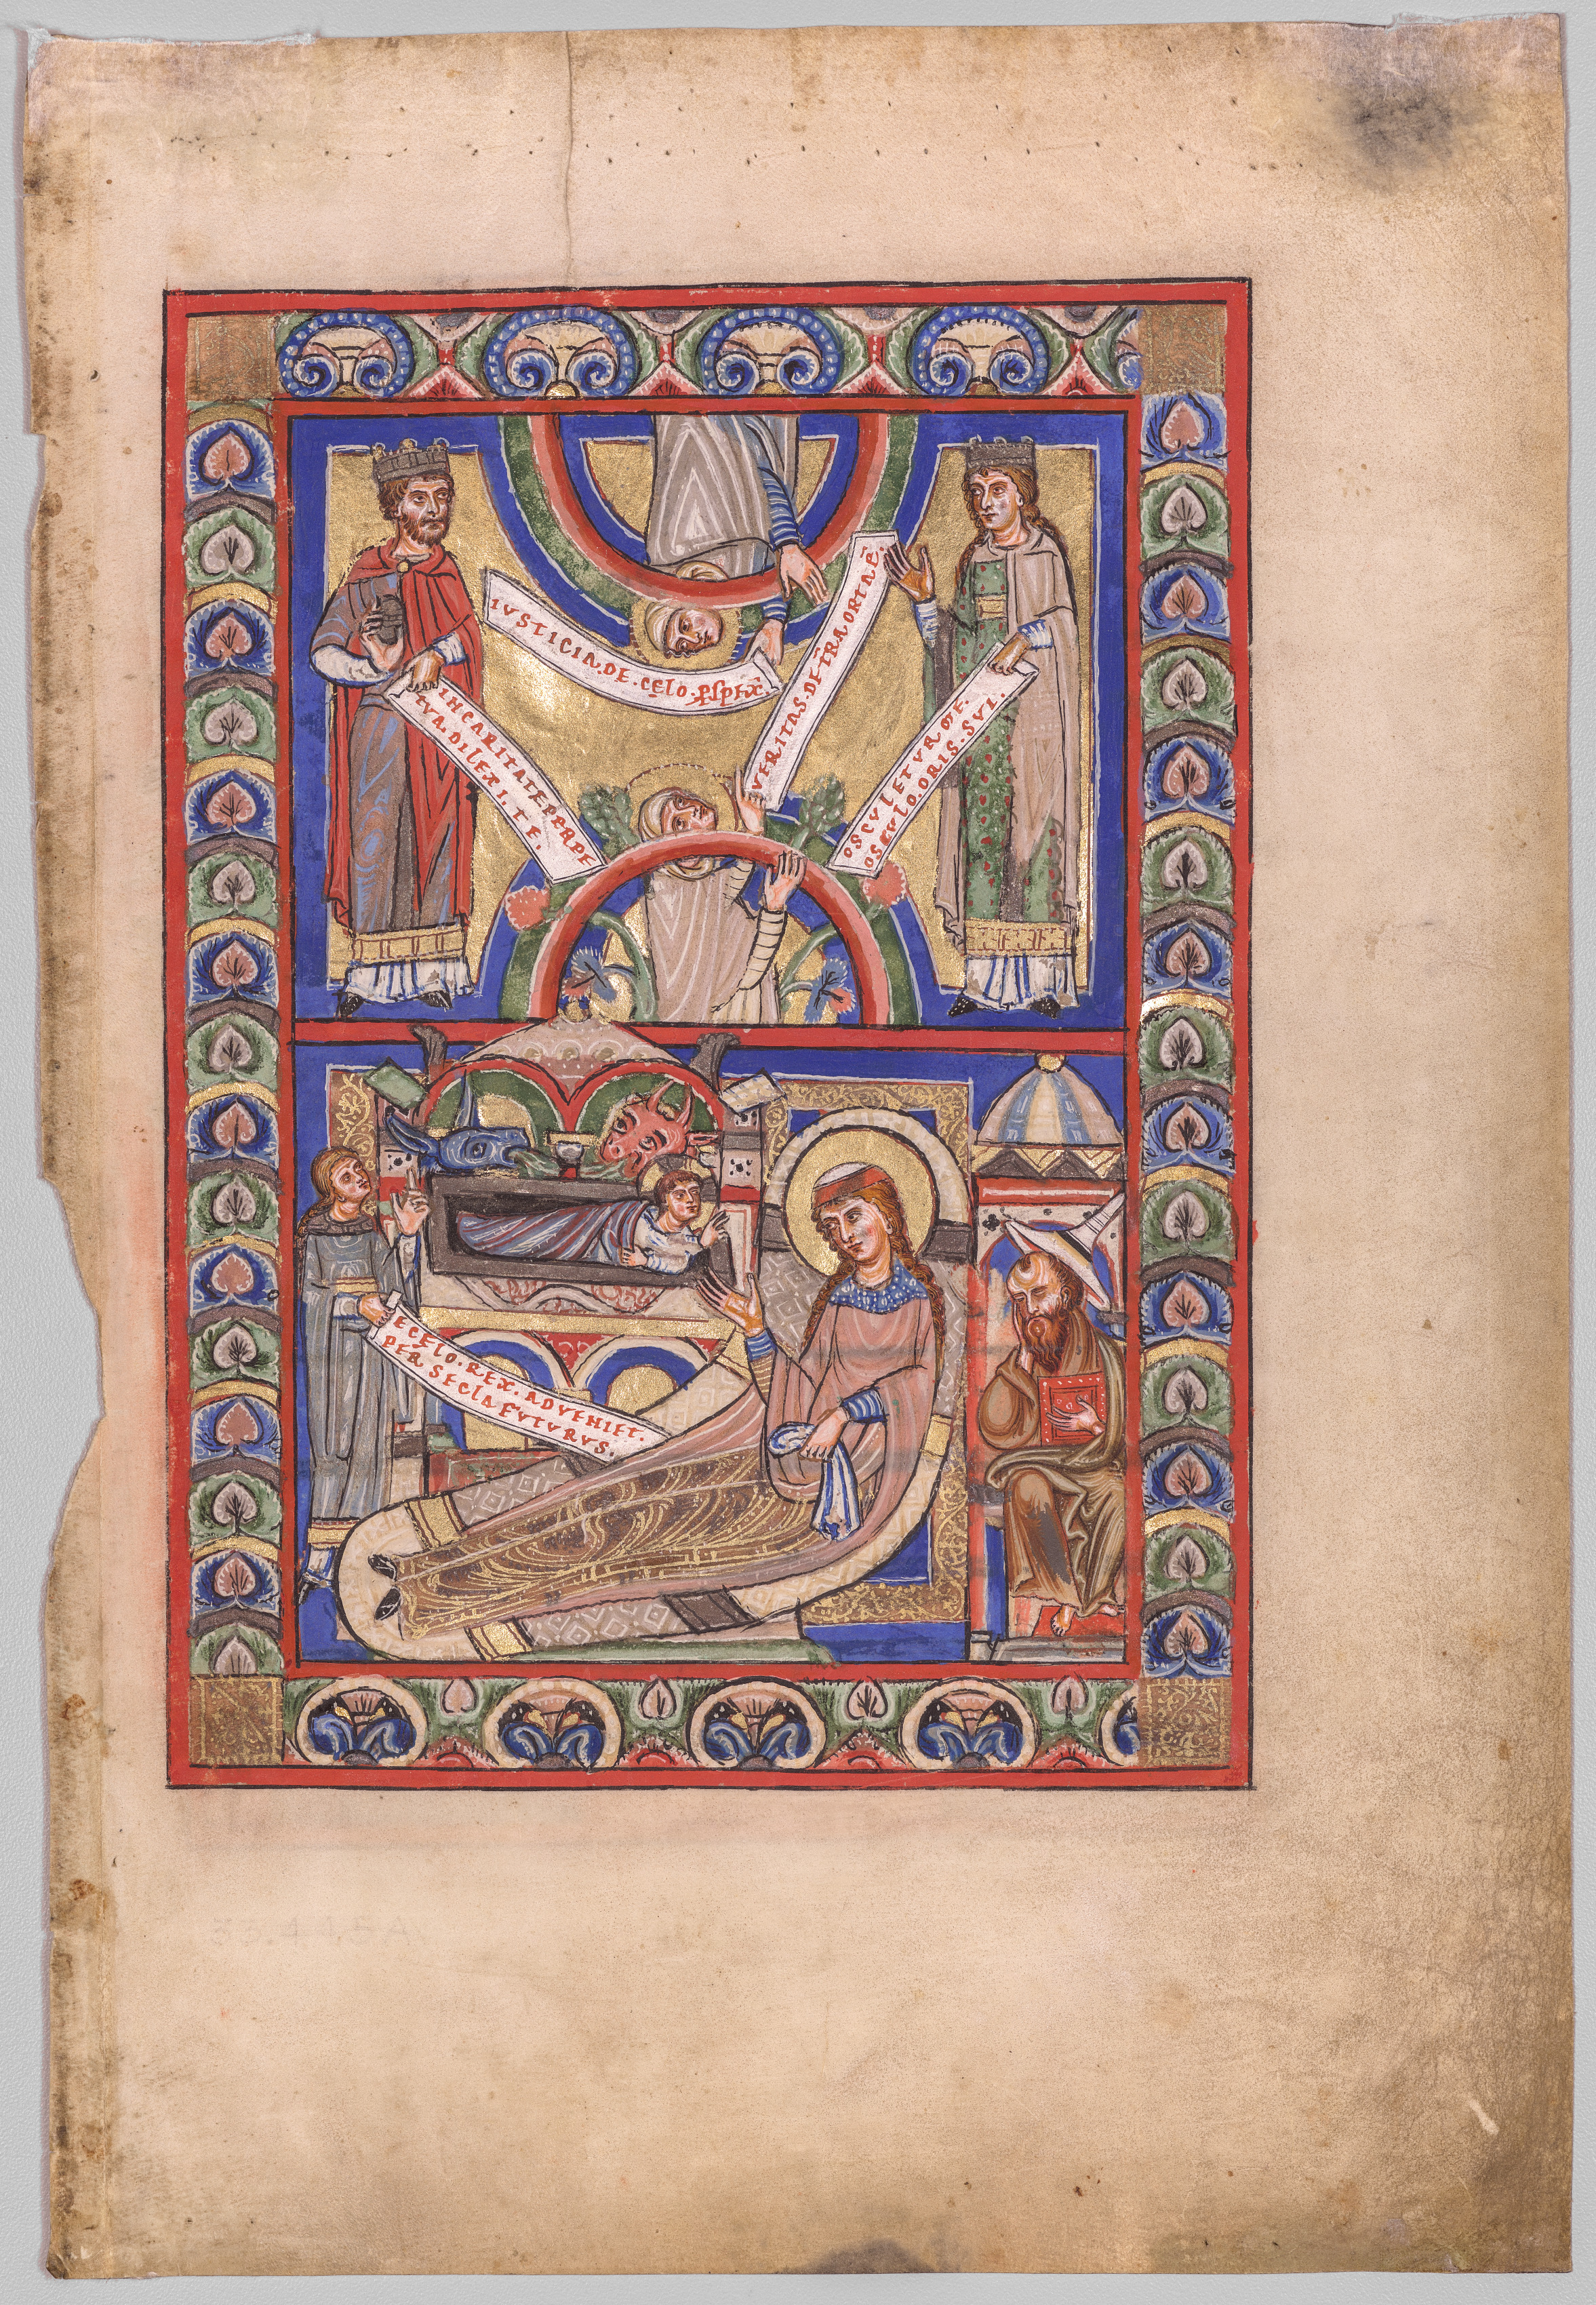 IVSTICIA.DE.CELO.ꝒSPEX̄.
VERITAS.DE T̄RA ORTA Ē.
INCARITATEPERPE
TVA.DILEXI.TE.
OSCVLETVR ME.
OSCVLO.ORIS.SVI.
ECELO.REX.ADVENIET.
PER.SECLA FVTVRVS.